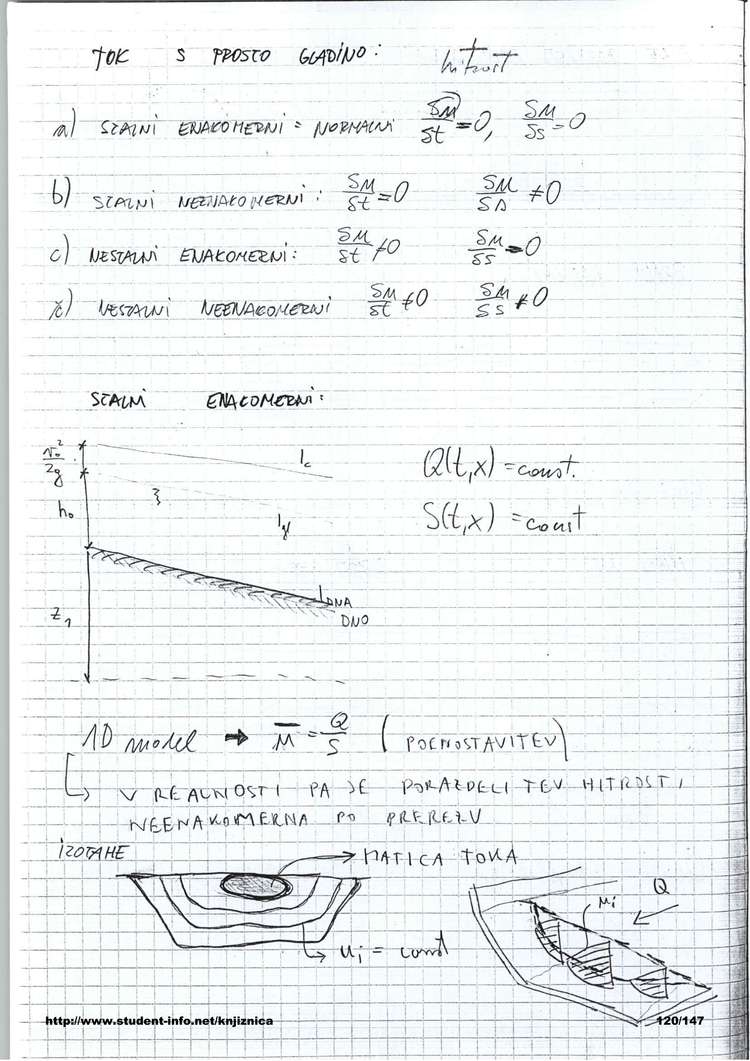 TOK S PROSTO GLADINO: hitrost
a) STALNI ENAKOMERNI = NORMALNI δu/δt = 0, δu/δs = 0
b) STALNI NEENAKOMERNI: δu/δt = 0 δu/δs ≠ 0
c) NESTALNI ENAKOMERNI: δu/δt ≠ 0 δu/δs = 0
č) NESTALNI NEENAKOMERNI δu/δt ≠ 0 δu/δs ≠ 0
STALNI ENAKOMERNI:
v₀²/2g
I_c
Q(t,x) = const.
h₀
I_gl
S(t,x) = const
I DNA
z₁
DNO
1D model → ū = Q/S (POENOSTAVITEV)
↳ V REALNOSTI PA JE PORAZDELITEV HITROSTI
NEENAKOMERNA PO PREREZU
IZOTAHE
MATICA TOKA
Q
u_i
u_i = const
http://www.student-info.net/knjiznica
120/147